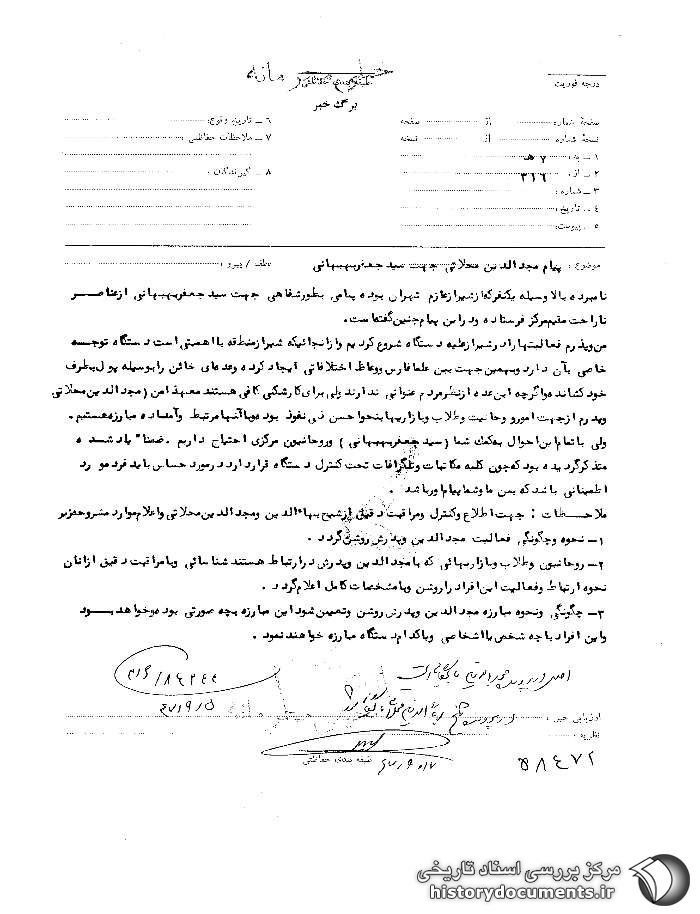 خیلی محرمانه
طبقه‌بندی حفاظتی
درجه فوریت
برگ خبر
صفحهٔ شماره: از صفحه
نسخهٔ شماره از نسخه
۱ـ به: ۷ هـ
۲ـ از: ۳۱۶
۳ـ شماره:
٤ـ تاریخ:
٥ـ پیوست:
٦ـ تاریخ وقوع:
۷ـ ملاحظات حفاظتی:
۸ـ گیرندگان:
موضوع: پیام مجدالدین محلاتی جهت سید جعفر بهبهانی عطف / پیرو:
نامبرده بالا وسیله یکنفر که از شیراز عازم تهران بوده پیامی بطور شفاهی جهت سید جعفر بهبهانی از عناصر
ناراحت مقیم مرکز فرستاده و در این پیام چنین گفته است.
من و پدرم فعالیتها را در شیراز علیه دستگاه شروع کردیم و از آنجائیکه شیراز منطقه با اهمیتی است دستگاه توجه
خاصی بآن دارد و بهمین جهت بین علما فارس و وعاظ اختلافاتی ایجاد کرده و عده‌ای خائن را بوسیله پول بطرف
خود کشانده و اگرچه این عده از نظر مردم عنوانی ندارند ولی برای کارشکنی کافی هستند معهذا من (مجدالدین محلاتی)
و پدرم از جهت امور روحانیت و طلاب و بازاریها بنحو احسن ذی نفوذ بوده و با آنها مرتبط و آماده مبارزه هستیم.
ولی با تمام این احوال بکمک شما (سید جعفر بهبهانی) و روحانیون مرکزی احتیاج داریم. ضمنا" یاد شده
متذکر گردیده بود که چون کلیه مکاتبات و تلگرافات تحت کنترل دستگاه قرار دارد در مورد حساس باید فرد مورد
اطمینانی باشد که بین ما و شما پیام آور باشد.
ملاحظات: جهت اطلاع و کنترل و مراقبت دقیق از شیخ بهاءالدین و مجدالدین محلاتی و اعلام موارد مشروحه زیر
۱ـ نحوه و چگونگی فعالیت مجدالدین و پدرش روشن گردد.
۲ـ روحانیون و طلاب و بازاریهائی که با مجدالدین و پدرش در ارتباط هستند شناسائی و با مراقبت دقیق از آنان
نحوه ارتباط و فعالیت این افراد را روشن و با مشخصات کامل اعلام گردد.
۳ـ چگونگی و نحوه مبارزه مجدالدین و پدرش روشن و تعیین شود این مبارزه بچه صورتی بوده و خواهد بود
و این افراد با چه شخص یا اشخاصی و با کدام دستگاه مبارزه خواهند نمود.
اصل در پرونده مجدالدین
۳۱۶/۸٤۲٤٤
٤۷/۹/٥
ارزیابی خبر:
نظریه:
طبقه بندی حفاظتی
٥۸٤۷۲
مرکز بررسی اسناد تاریخی
historydocuments.ir